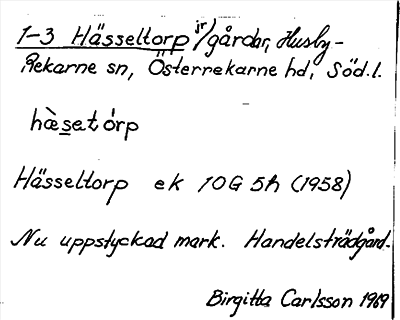 1-3 Hässeltorp jr/gårdar, Husby-
Rekarne sn, Österrekarne hd, Söd.l.
hὰ̀setórp
Hässeltorp ek 10G 5h (1958)
Nu uppstyckad mark. Handelsträdgård.
Birgitta Carlsson 1969